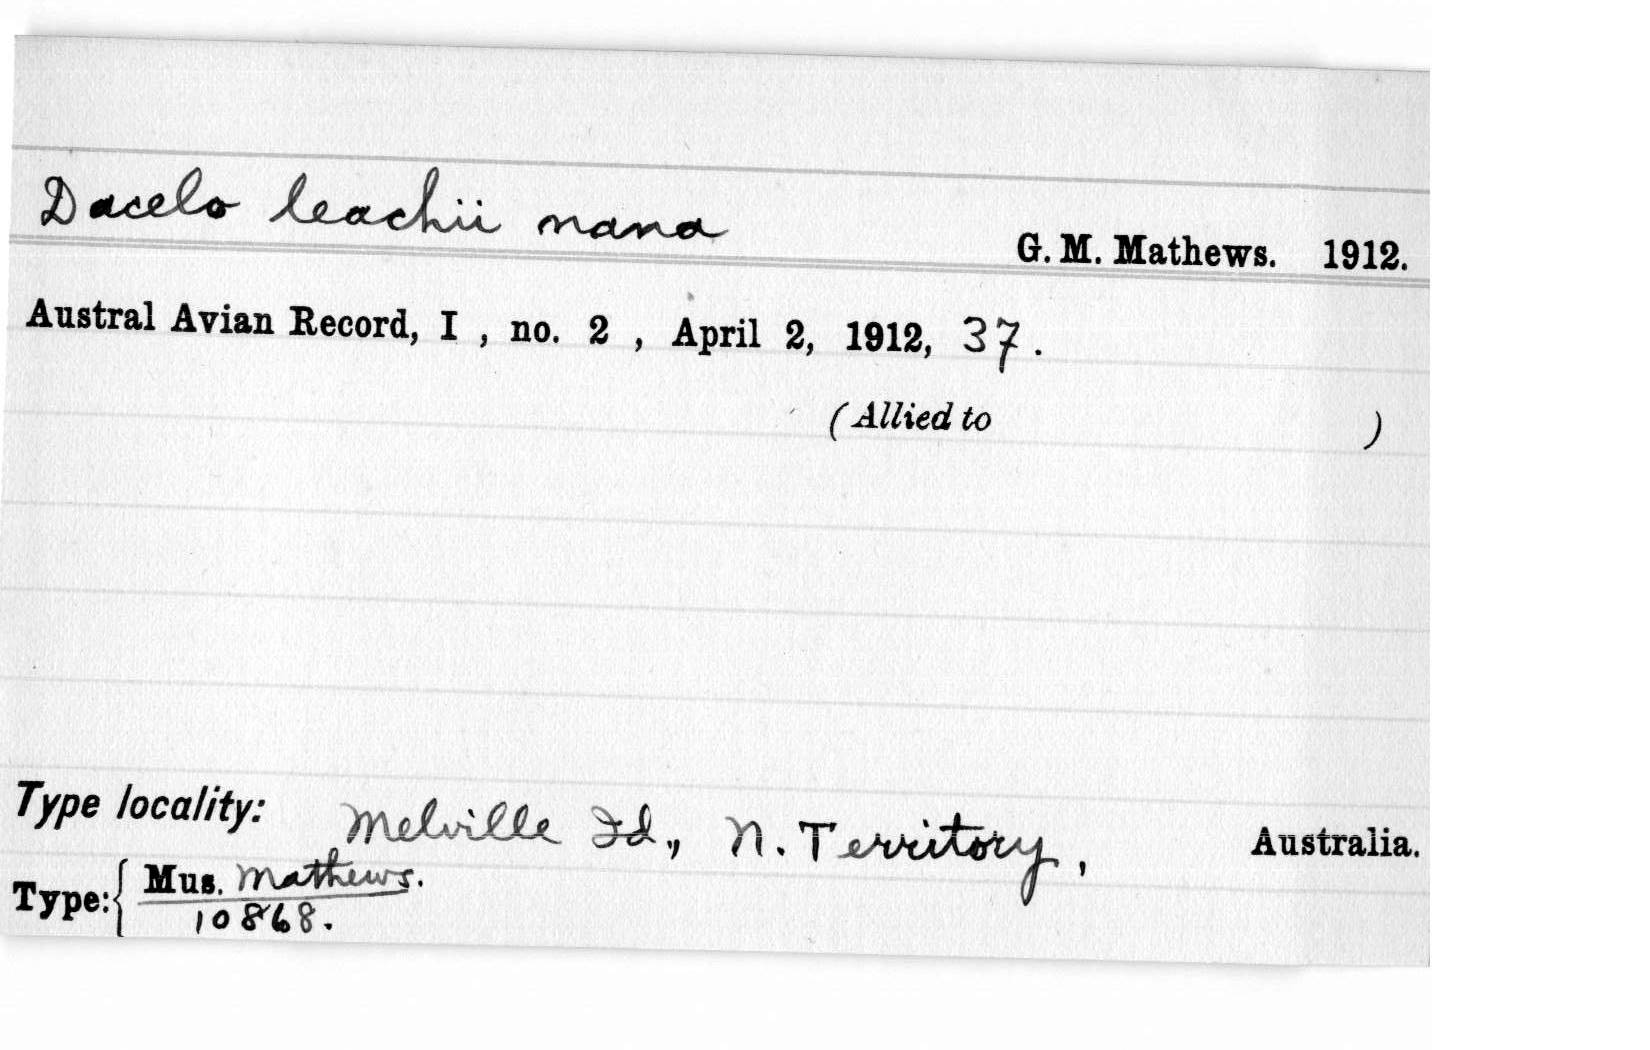 Dacelo leachii nana
G. M. Mathews. 1912.
Austral Avian Record, I , no. 2 , April 2, 1912, 37.
(Allied to )
Type locality: Melville Id., N. Territory, Australia.
Type: { Mus. Mathews.
10868.